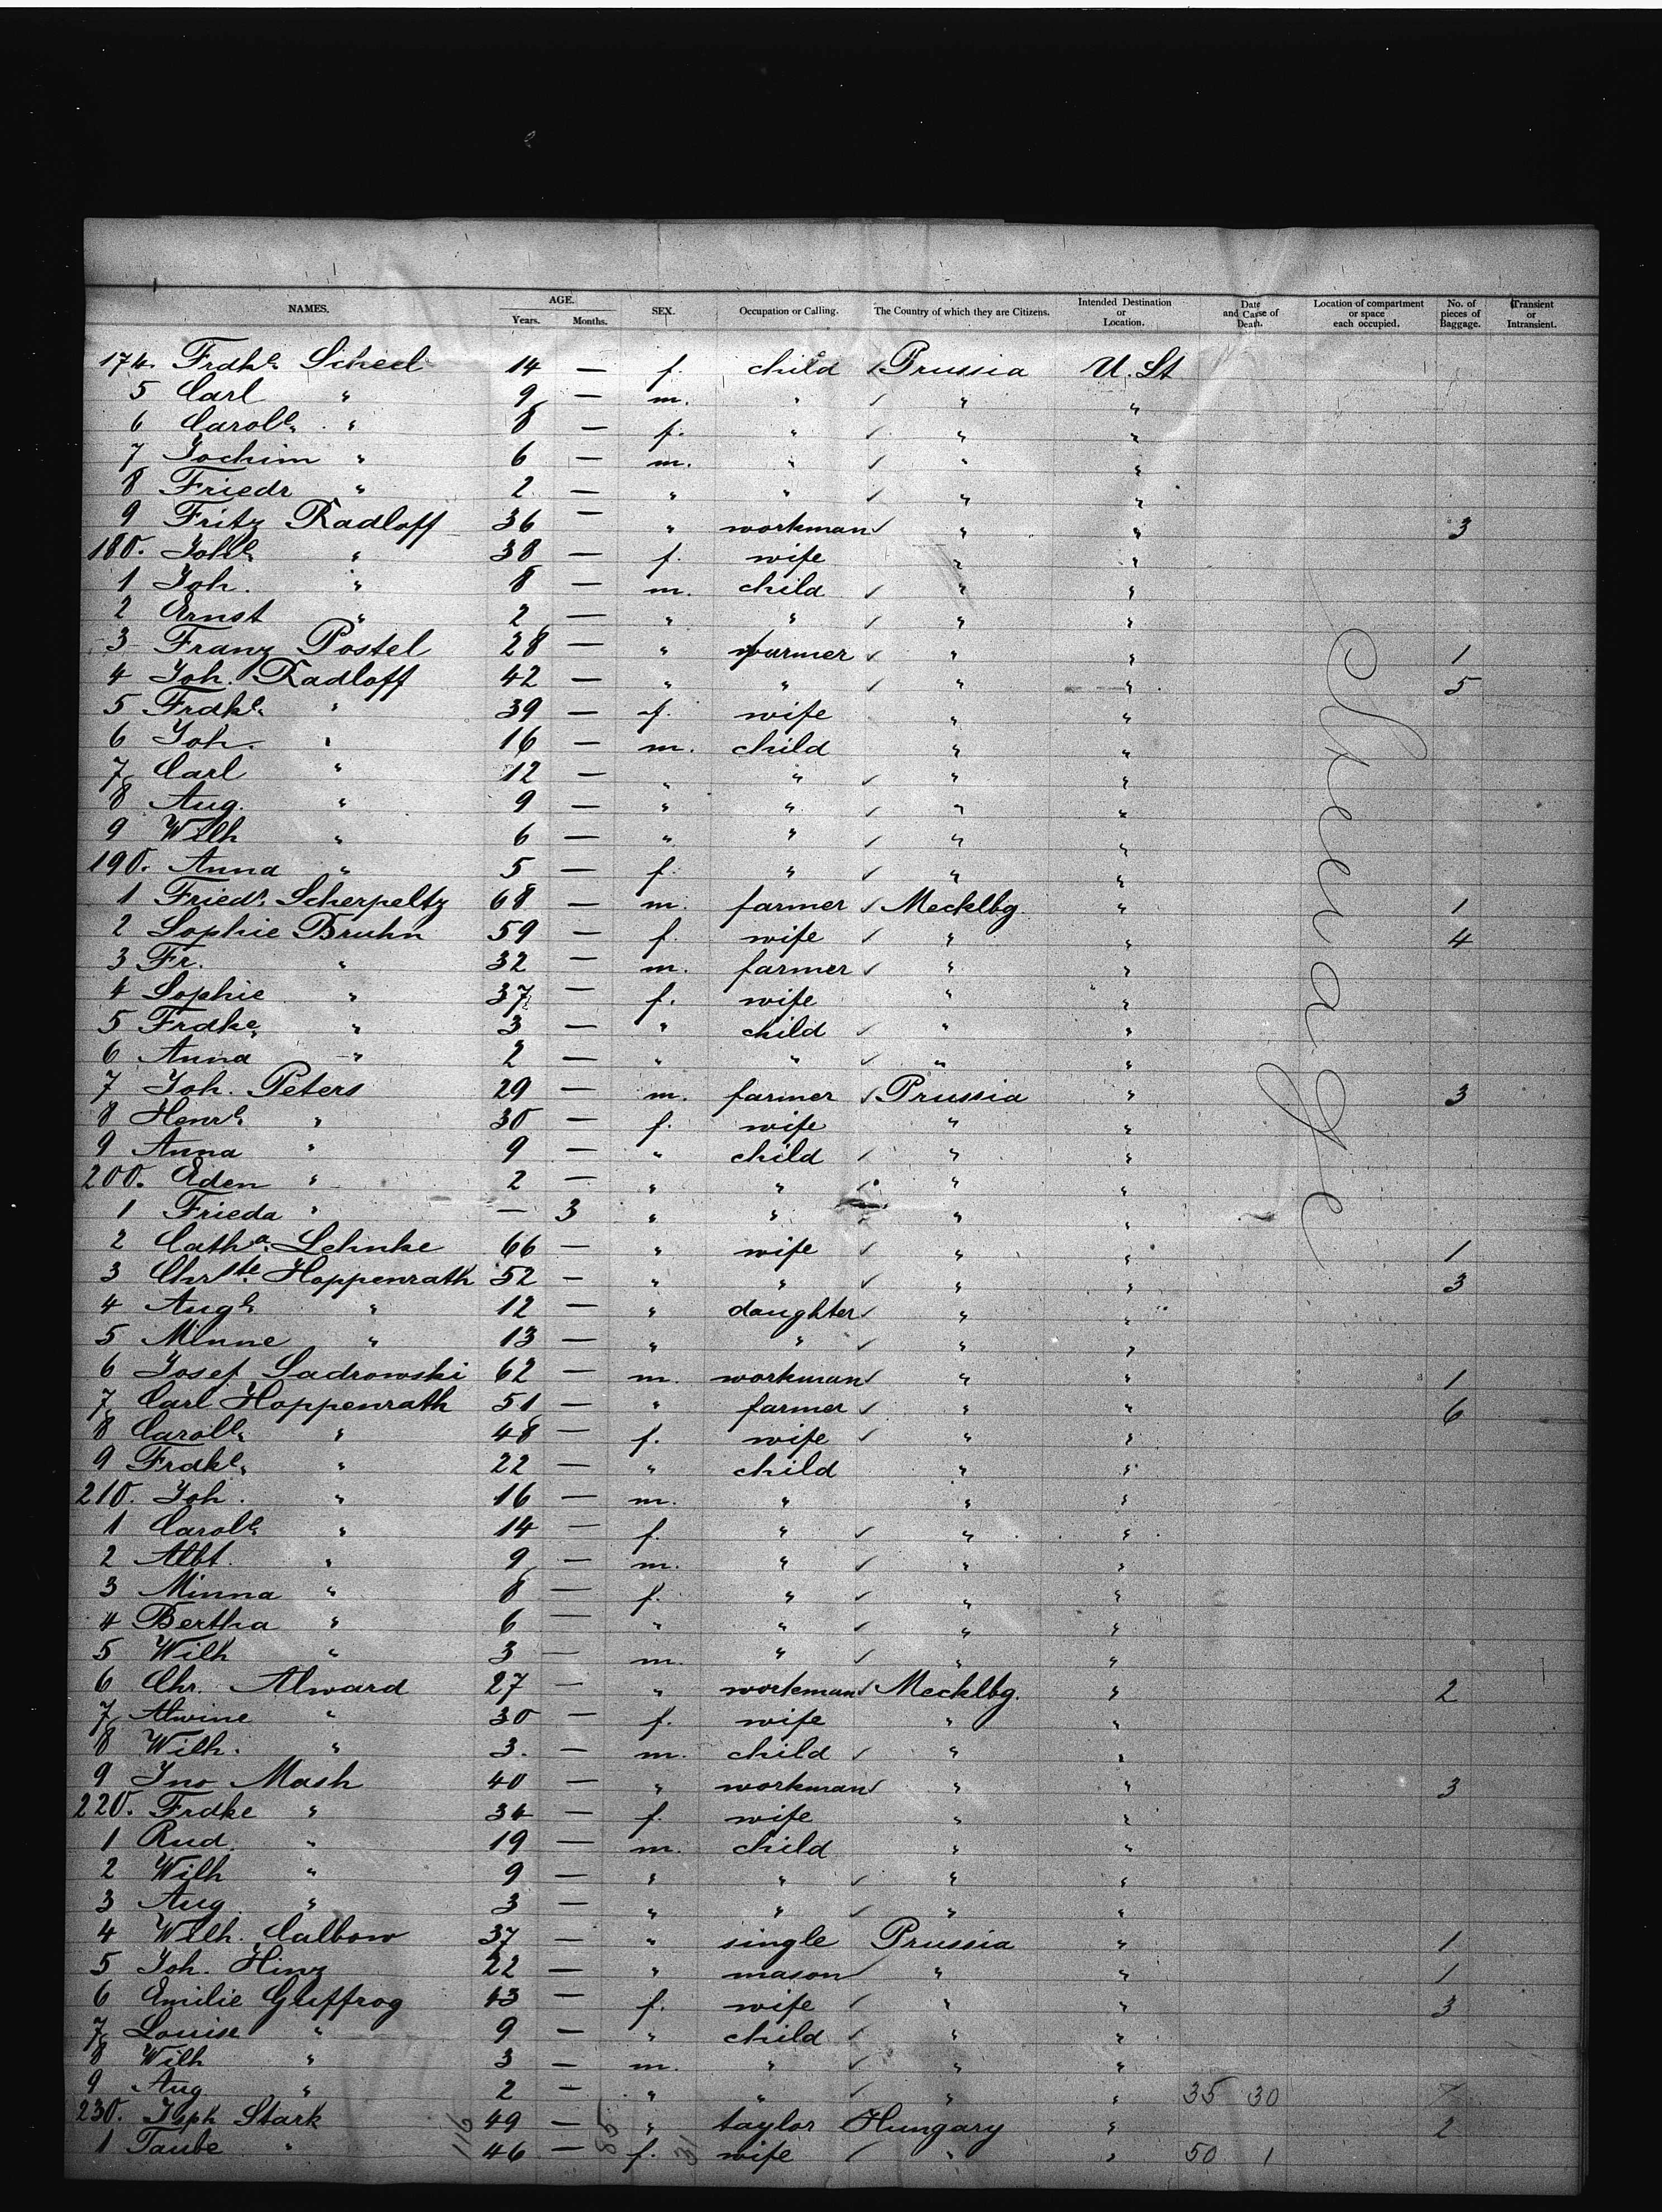 NAMES. AGE. Years. Months. SEX. Occupation or Calling. The Country of which they are Citizens. Intended Destination or Location. Date and Cause of Death. Location of compartment or space each occupied. No. of pieces of Baggage. Transient or Intransient.
174. Frdke. Scheel 14 — f. child ✓ Prussia U. St
5 Carl " 9 — m. " ✓ " "
6 Carole. " 8 — f. " ✓ " "
7 Jochim " 6 — m. " ✓ " "
8 Friedr " 2 — " " ✓ " "
9 Fritz Radloff 36 — " workman ✓ " " 3
180. Johe. " 38 — f. wife " "
1 Joh. " 8 — m. child ✓ " "
2 Ernst " 2 — " " ✓ " "
3 Franz Postel 28 — " farmer ✓ " " 1
4 Joh. Radloff 42 — " " ✓ " " 5
5 Frdke. " 39 — f. wife " "
6 Joh. " 16 — m. child " "
7 Carl " 12 — " " ✓ " "
8 Aug. " 9 — " " ✓ " "
9 Wilh " 6 — " " ✓ " "
190. Anna " 5 — f. " ✓ " "
1 Friedr. Scherpeltz 68 — m. farmer ✓ Mecklbg. " 1
2 Sophie Bruhn 59 — f. wife ✓ " " 4
3 Fr. " 32 — m. farmer ✓ " "
4 Sophie " 37 — f. wife " "
5 Frdke. " 3 — " child ✓ " "
6 Anna " 2 — " " ✓ " "
7 Joh. Peters 29 — m. farmer ✓ Prussia " 3
8 Henre. " 30 — f. wife " "
9 Anna " 9 — " child ✓ " "
200. Eden " 2 — " " ✓ " "
1 Frieda " — 3 " " " "
2 Catha. Lehnke 66 — " wife ✓ " " 1
3 Chrste. Hoppenrath 52 — " " ✓ " " 3
4 Auge. " 12 — " daughter ✓ " "
5 Minne " 13 — " " ✓ " "
6 Josef Sadrowski 62 — m. workman ✓ " " 1
7 Carl Hoppenrath 51 — " farmer ✓ " " 6
8 Carole. " 48 — f. wife ✓ " "
9 Frdke. " 22 — " child " "
210. Joh. " 16 — m. " " "
1 Carole. " 14 — f. " ✓ " "
2 Albt. " 9 — m. " ✓ " "
3 Minna " 8 — f. " ✓ " "
4 Bertha " 6 — " " ✓ " "
5 Wilh " 3 — m. " ✓ " "
6 Chr. Alward 27 — " workman ✓ Mecklbg. " 2
7 Alwine " 30 — f. wife " "
8 Wilh. " 3. — m. child ✓ " "
9 Jno Mash 40 — " workman ✓ " " 3
220. Frdke " 34 — f. wife " "
1 Rud. " 19 — m. child " "
2 Wilh " 9 — " " ✓ " "
3 Aug. " 3 — " " ✓ " "
4 Wilh. Calbow 37 — " single Prussia " 1
5 Joh. Hinz 22 — " mason ✓ " " 1
6 Emilie Gluffrog 43 — f. wife ✓ " " 3
7 Louise " 9 — " child ✓ " "
8 Wilh " 3 — m. " ✓ " "
9 Aug " 2 — " " ✓ " " 35 30
230. Jsph Stark 49 — " taylor Hungary " 2
1 Taube " 46 — f. wife ✓ " " 50 1
Steerage
116 85 31